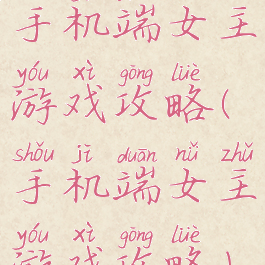 手机端女主
yóu xì gōng lüè
游戏攻略(
shǒu jī duān nǚ zhǔ
手机端女主
yóu xì gōng lüè
游戏攻略)